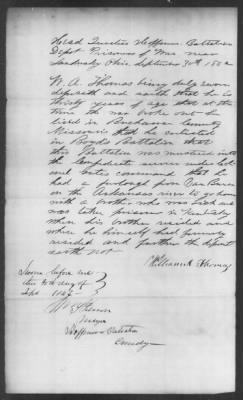 Head Quarters Hoffmans Battalion
Depot Prisoners of War near
Sandusky Ohio September 30th 1862
W. A. Thomas being duly sworn
deposeth and saith that he is
thirty years of age that at the
time the war broke out he
lived in Buchanan County
Missouri that he enlisted
in Boyds Battalion that
this Battalion was mustered into
the Confederate service under
command that he
had a furlough from Van Buren
on the Arkansas river to go home
with a brother who was sick and
was taken prisoner in
when his brother resided and
where he himself had formerly
resided and further the deponent
saith not
William A Thomas
Sworn before me
this 30th day of
Sept 1862
W. S. Pierson
Major
Hoffmans Battalion
Comdg